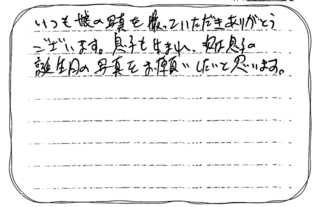 いつも娘の写真を撮っていただきありがとう
ございます。息子も生まれ、息子の
誕生日の写真をお願いしたいと思います。